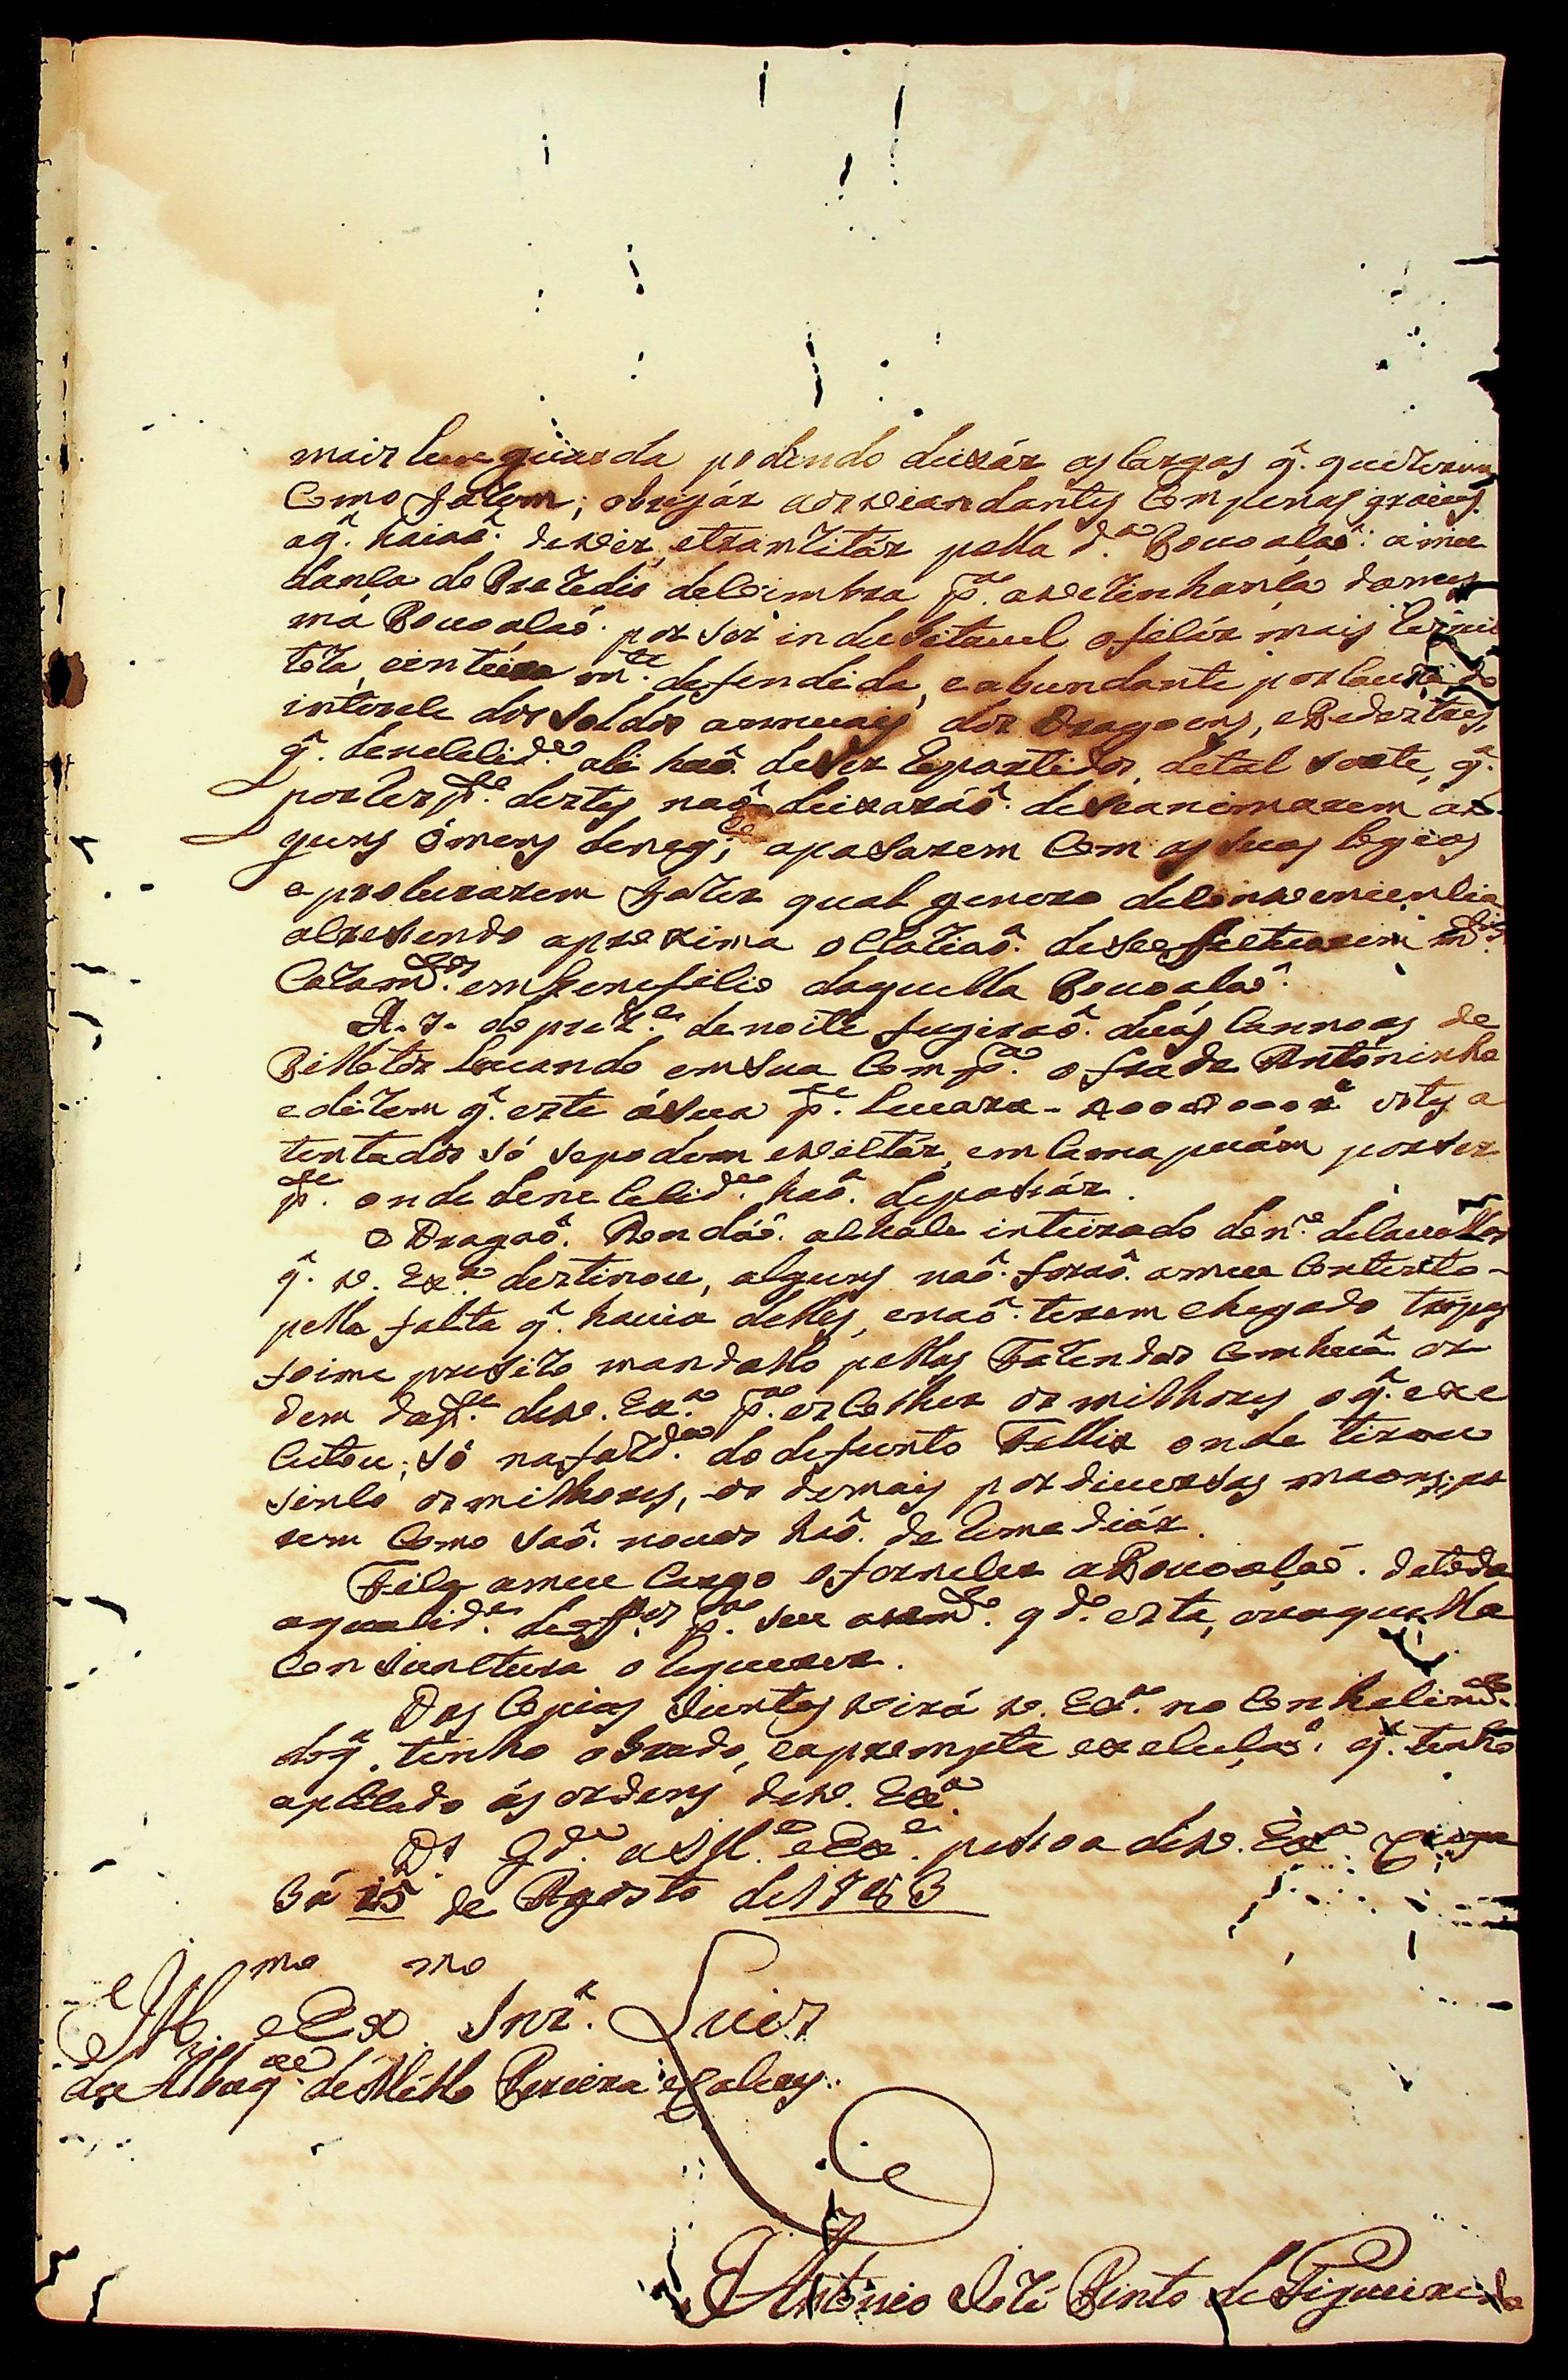 mais leue guarda podendo deixár as cargas q̃. quizerem
Como fazem; obrigár aos viandantes Com penas graves
aq̃. haiaõ. de vir, etranzitár pella d.ª Povoaçaõ: a mu
dança do Prezedio de Coimbra p.ª avezinhança da mes
ma Povoaçaõ. por ser indubitavel o ficár mais
inteira m.te defendida, e abundante por cauza do
interece dos soldos annuais dos Dragoens, e Pedestres,
q̃. de necelid.e ali haõ. de ser repartidos, de tal sorte, q̃.
por ter p.te destes naõ deixaráõ. de se animarem al
guns ómens de neg.º, apasarem Com as suas logias
e procurarem fazer qual genero de Conveniencia
alcevendo a prezima ocaziaõ. de se efectuarem m.tos
Cazam.tos em beneficio daquella Povoaçaõ.
A. 7. do prez.e de noite fugiraõ. duas Cannoas de
Pilletos Levando em sua Comp.ª o frade Antoninho
e dizem q̃. este á sua p.te Levara - estes a
tentados só se podem evittár, em Camapuám por ser
p.te onde de ne Celid.e haõ. de pasár.
O Dragaõ. Rondaõ. a chale inteirado do n.º de Cavallos
q̃. v. Ex.ª destinou, alguns naõ. foraõ. a meu Contento -
pella falta q̃. havia delles, enaõ. terem chegado tropas
foime precizo mandallo pellas Fazendas Com huã or
dem da p.te de v. Ex.ª p.ª es Colher os milhores o q̃. exe
Cutou; só na faz.da do defunto Fellis onde tirou
sinco os milhores, os demais por diversas maons, po
rem Como saõ. novos haõ. de remediár.
Fica a meu Cargo o fornecer a Povoaçaõ. de toda
a qualid.e de p.ª seu aum.to q d.º esta, ou aquella
Conjunctura o requerer.
Das Copias Juntas verá v. Ex.ª no Conhecim.to
do q̃. tenho obrado, e a prompta execuçaõ. q̃. tenho
aplicado ás ordens de v. Ex.ª
D.s G.de a Ill.e e Ex.e pesoa de v. Ex.ª Cuya
bá 15 de Agosto de 1783
Ill.mo e Ex.mo Snr. Luis
de Albuq.e de Mello Pereira e Caceres.
Antonio Jozé Pinto de Figueiredo